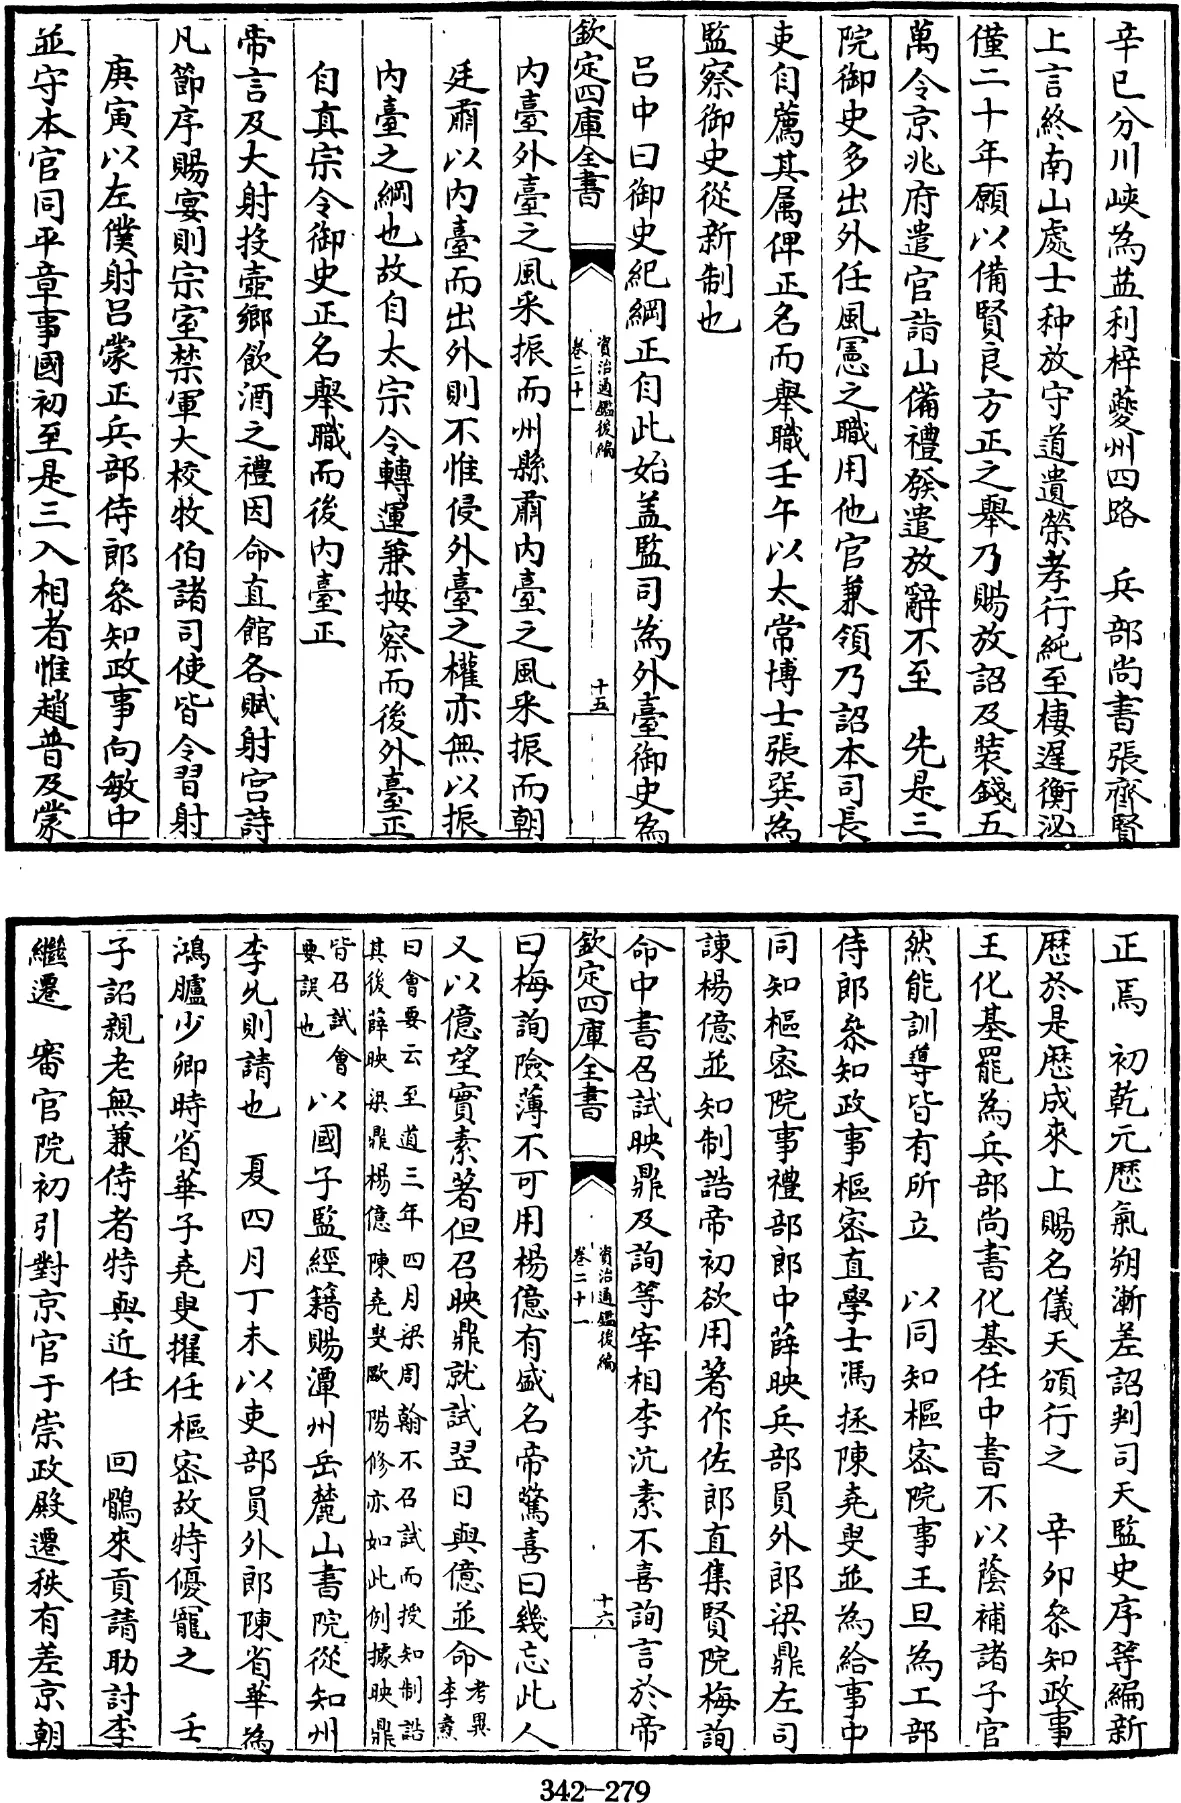 辛巳分川峽為益利梓夔州四路　兵部尚書張齊賢
上言終南山處士种放守道遺榮孝行純至棲遲衡泌
僅二十年願以備賢良方正之舉乃賜放詔及裝錢五
萬令京兆府遣官詣山備禮發遣放辭不至　先是三
院御史多出外任風憲之職用他官兼領乃詔本司長
吏自薦其属俾正名而舉職壬午以太常博士張巽為
監察御史從新制也
呂中曰御史紀綱正自此始盖監司為外臺御史為
欽定四庫全書
資治通鑑後編
卷二十一
十五
内臺外臺之風采振而州縣肅内臺之風采振而朝
廷肅以内臺而出外則不惟侵外臺之權亦無以振
内臺之綱也故自太宗令轉運兼按察而後外臺正
自真宗令御史正名舉職而後内臺正
帝言及大射投壺鄉飲酒之禮因命直館各賦射宫詩
凡節序賜宴則宗室禁軍大校牧伯諸司使皆令習射
庚寅以左僕射呂蒙正兵部侍郎參知政事向敏中
並守本官同平章事國初至是三入相者惟趙普及蒙
正焉　初乾元歴氣朔漸差詔判司天監史序等編新
歴於是歴成來上賜名儀天頒行之　辛卯參知政事
王化基罷為兵部尚書化基任中書不以蔭補諸子官
然能訓導皆有所立　以同知樞密院事王旦為工部
侍郎參知政事樞密直學士馮拯陳堯叟並為給事中
同知樞密院事禮部郎中薛映兵部員外郎梁鼎左司
諫楊億並知制誥帝初欲用著作佐郎直集賢院梅詢
命中書召試映鼎及詢等宰相李沆素不喜詢言於帝
欽定四庫全書
資治通鑑後編
卷二十一
十六
曰梅詢險薄不可用楊億有盛名帝驚喜曰幾忘此人
又以億望實素著但召映鼎就試翌日與億並命考異李燾
曰會要云至道三年四月梁周翰不召試而授知制誥
其後薛映梁鼎楊億陳堯叟歐陽修亦如此例據映鼎
皆召試會要誤也　以國子監經籍賜潭州岳麓山書院從知州
李允則請也　夏四月丁未以吏部員外郎陳省華為
鴻臚少卿時省華子堯叟擢任樞密故特優寵之　壬
子詔親老無兼侍者特與近任　回鶻來貢請助討李
繼遷　審官院初引對京官于崇政殿遷秩有差京朝
342—279